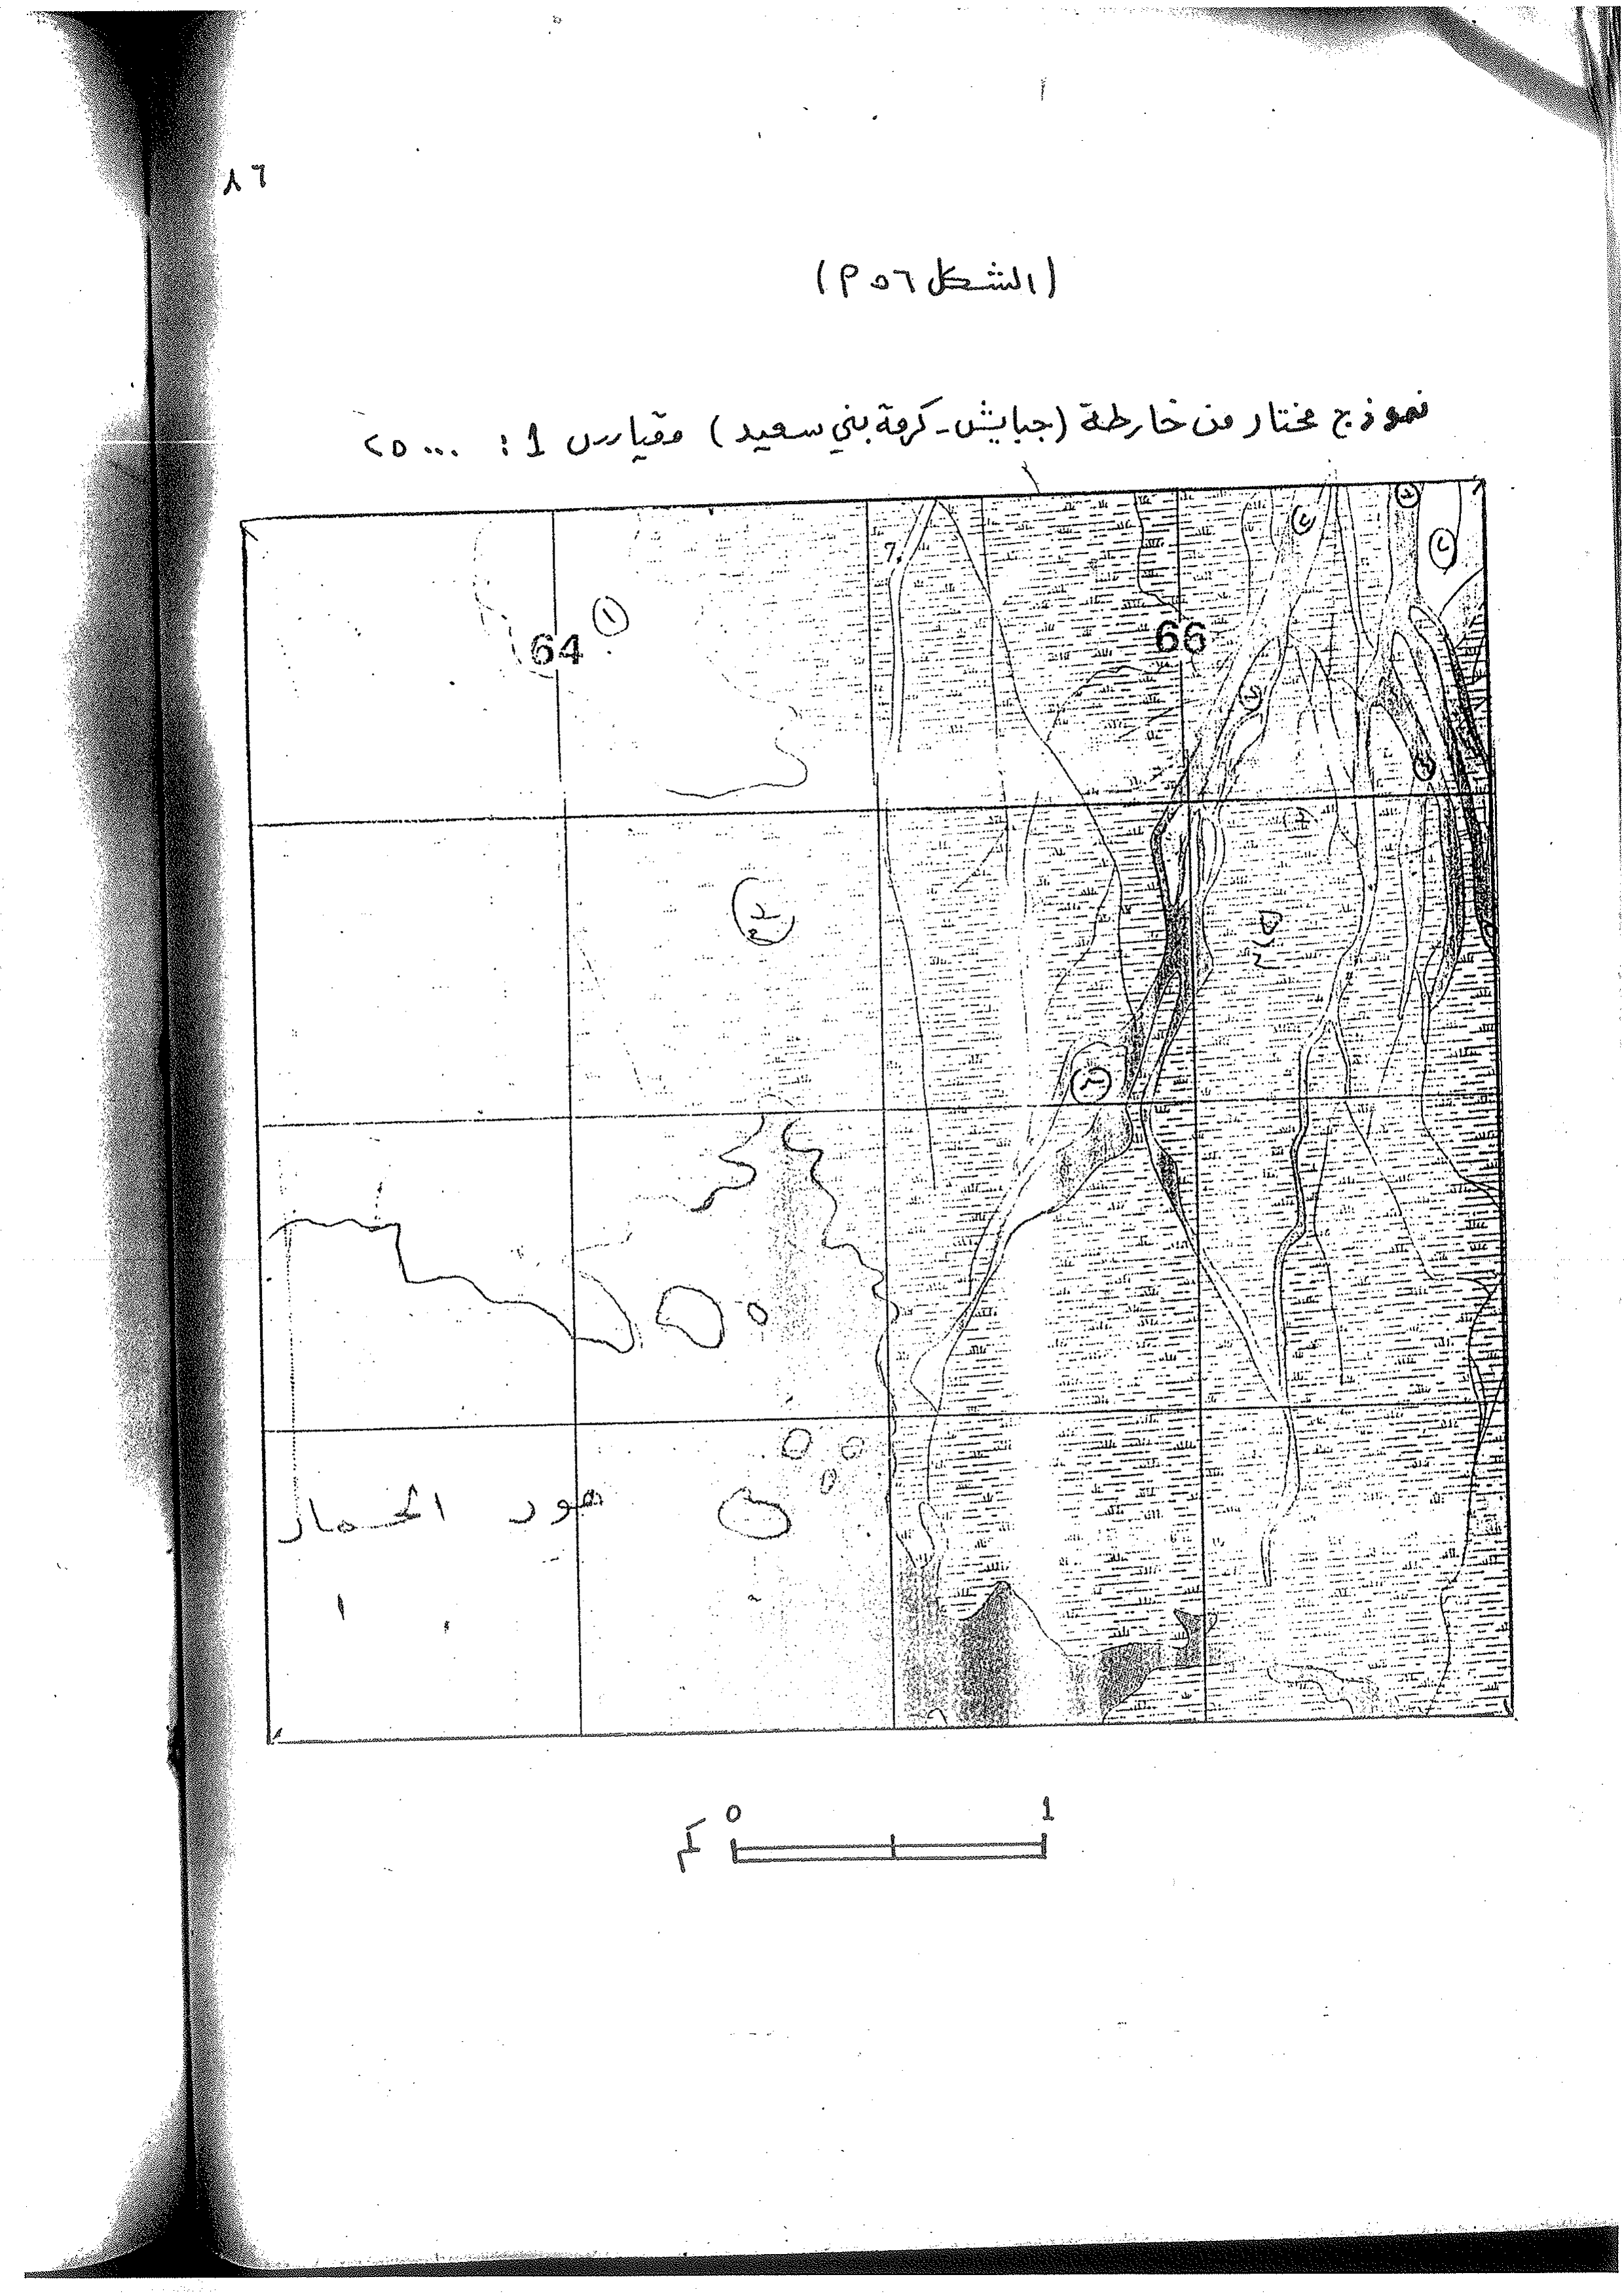 ٨٦
(الشكل ٥٦ م)
نموذج مختار من خارطة (جبايش - كرمة بني سعيد) مقياس 1 : ٢٥٠٠٠
7
64
66
١
٢
هور الحمار
كم 0 1